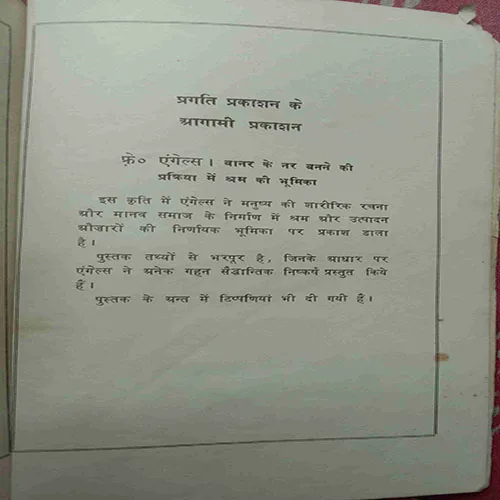 प्रगति प्रकाशन के
आगामी प्रकाशन
फ़्रे० एंगेल्स । वानर के नर बनने की
प्रक्रिया में श्रम की भूमिका
इस कृति में एंगेल्स ने मनुष्य की शारीरिक रचना
और मानव समाज के निर्माण में श्रम और उत्पादन
औज़ारों की निर्णायक भूमिका पर प्रकाश डाला
है।
पुस्तक तथ्यों से भरपूर है, जिनके आधार पर
एंगेल्स ने अनेक गहन सैद्धान्तिक निष्कर्ष प्रस्तुत किये
हैं।
पुस्तक के अन्त में टिप्पणियां भी दी गयी हैं।